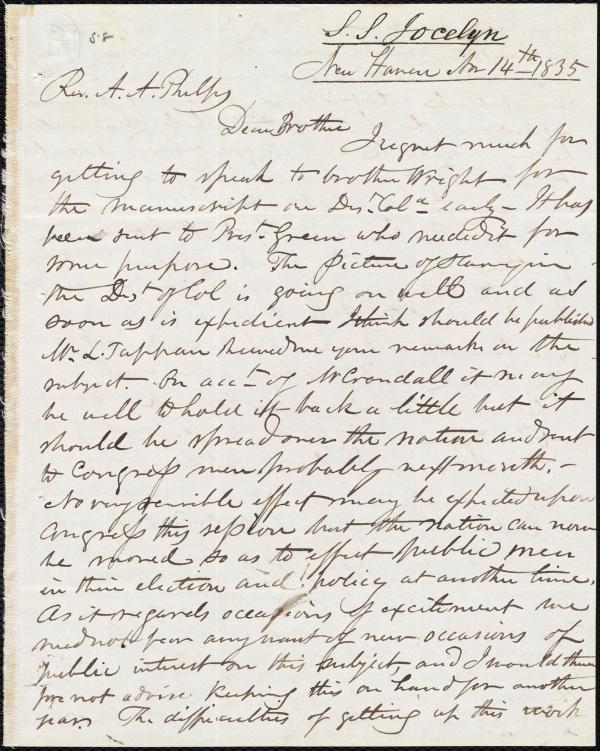 S. S. Jocelyn
New Haven Nov 14th 1835
Rev. A. A. Phelps
Dear Brother I regret much for
getting to speak to brother Wright for
the manuscript on Dis.t Col.a early - It has
been sent to Prest. Green who needed it for
some purpose. The Picture of Slavery in
the Dt. of Col is going on well and as
soon as is expedient I think should be published
Mr. L. Tappan shewed me your remarks on the
subject. - On acct. of Mr Crandall it may
be well to hold it back a little but it
should be spread over the nation and sent
to Congress men probably next month. -
No very sensible effect may be expected upon
Congress this session but the nation can now
be moved so as to effect public men
in their election and policy at another time.
As it regards occasions of excitement we
need not fear any want of new occasions of
public interest on this subject and I would there
fore not advise keeping this on hand for another
year. The difficulties of getting up this work